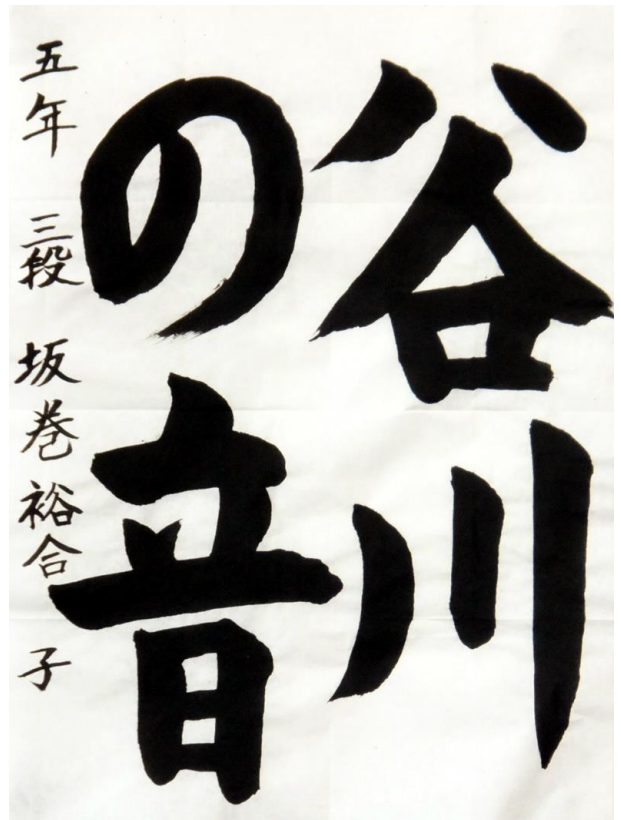 谷川
の音
五年 三段 坂巻裕合子